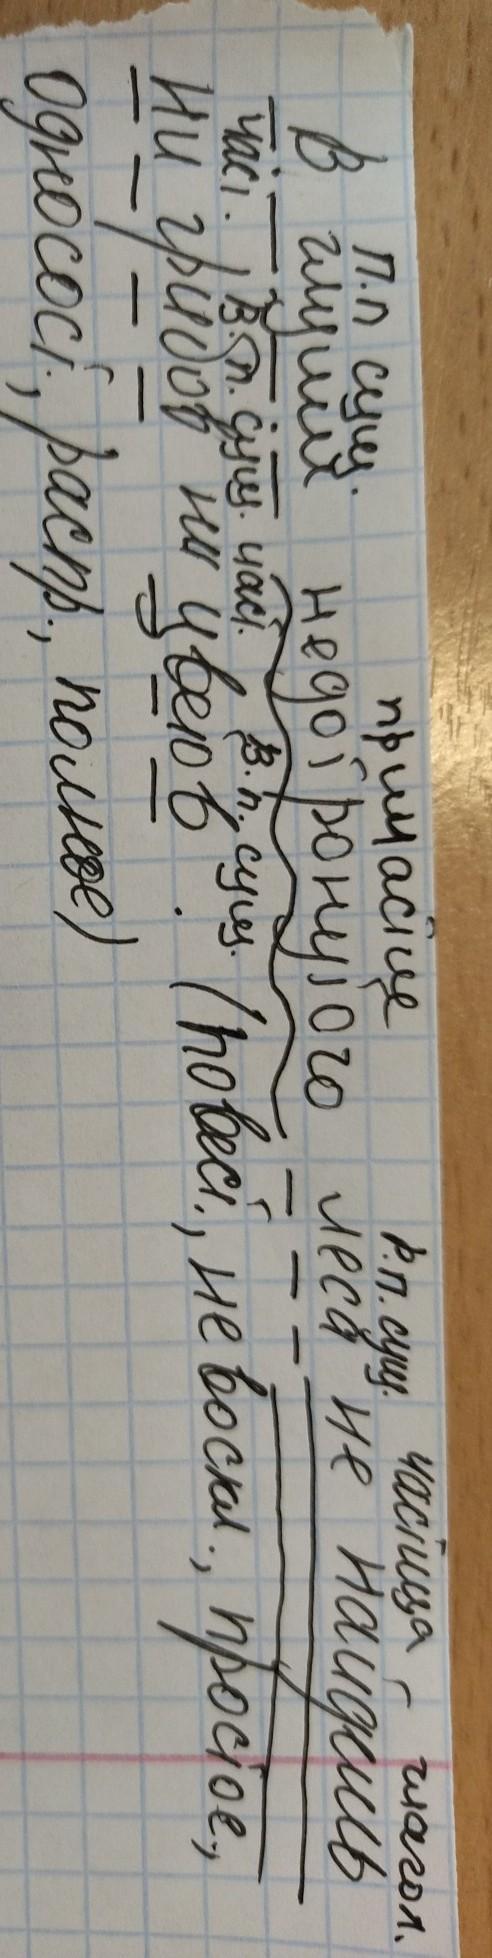 п.п сущ. причастие р.п. сущ. частица глагол.
В глуши недотронутого леса не найдешь
част. в.п. сущ. част. в.п. сущ.
ни грибов ни цветов. (повест., не воскл., простое.,
односост., распр., полное)